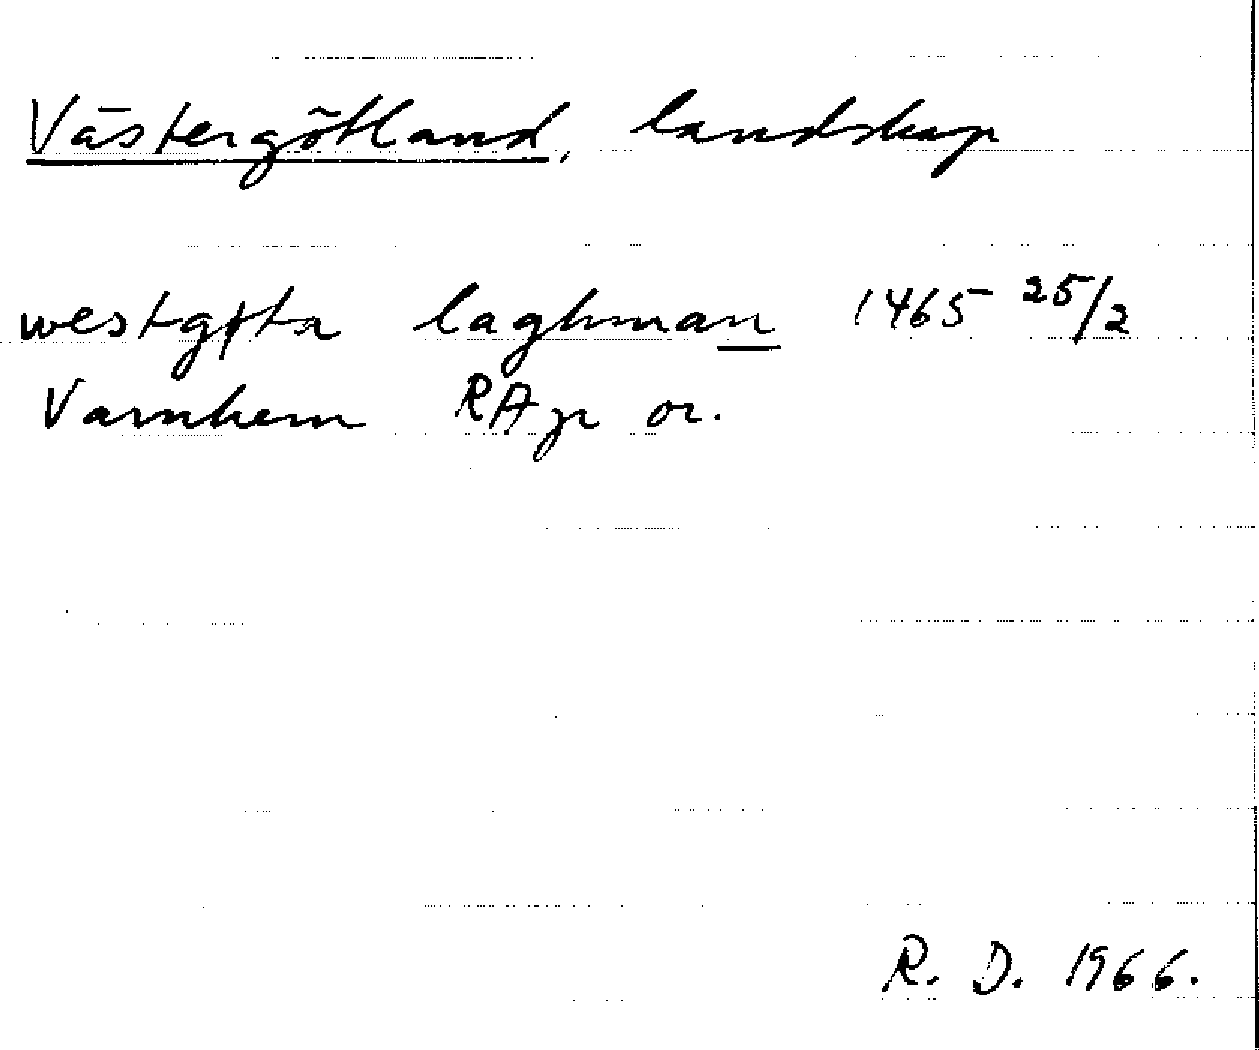 Västergötland, landskap
westgøta laghman 1465 25/2
Varnhem RAp or.
R. D. 1966.